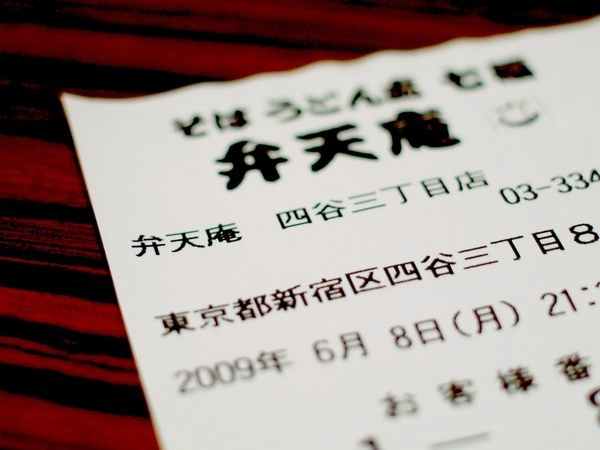 そば うどん処 七福
弁天庵
弁天庵 四谷三丁目店
03-334
東京都新宿区四谷三丁目8
2009年 6月 8日(月) 21:
お客様番